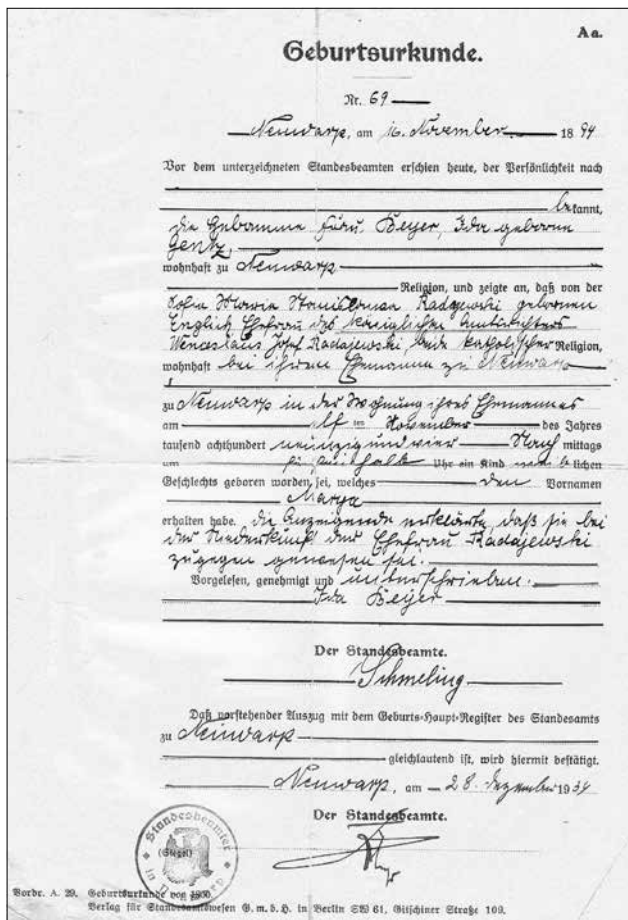 Aa.
Geburtsurkunde.
Nr. 69
Neuwarp, am 16. November 1894
Vor dem unterzeichneten Standesbeamten erschien heute, der Persönlichkeit nach
bekannt,
die Hebamme Frau Beyer, Ida geborne
Gentz,
wohnhaft zu Neuwarp
Religion, und zeigte an, daß von der
Sofia Maria Stanislawa Radajewski gebornen
Englich Ehefrau des königlichen Amtsrichters
Wenceslaus Josef Radajewski, beide katholischer Religion,
wohnhaft bei ihrem Ehemanne zu Neuwarp
zu Neuwarp in der Wohnung ihres Ehemannes
am elften November des Jahres
tausend achthundert neunzig und vier Nachmittags
um Uhr ein Kind weiblichen
Geschlechts geboren worden sei, welches den Vornamen
Marya
erhalten habe. Die Anzeigende erklärte, daß sie bei
der Niederkunft der Ehefrau Radajewski
zugegen gewesen sei.
Vorgelesen, genehmigt und unterschrieben.
Ida Beyer
Der Standesbeamte.
Schmeling
Daß vorstehender Auszug mit dem Geburts-Haupt-Register des Standesamts
zu Neuwarp
gleichlautend ist, wird hiermit bestätigt.
Neuwarp, am 28. Dezember 1934
Der Standesbeamte.
Standesbeamter
(Siegel)
Vordr. A. 29. Geburtsurkunde von
Verlag für Standesamtswesen G.m.b.H. in Berlin SW 61, Gitschiner Straße 109.